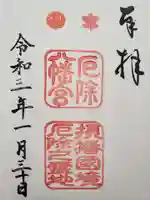 奉拝
厄除
八幡宮
摂播国境
厄除之地
令和三年一月三十日